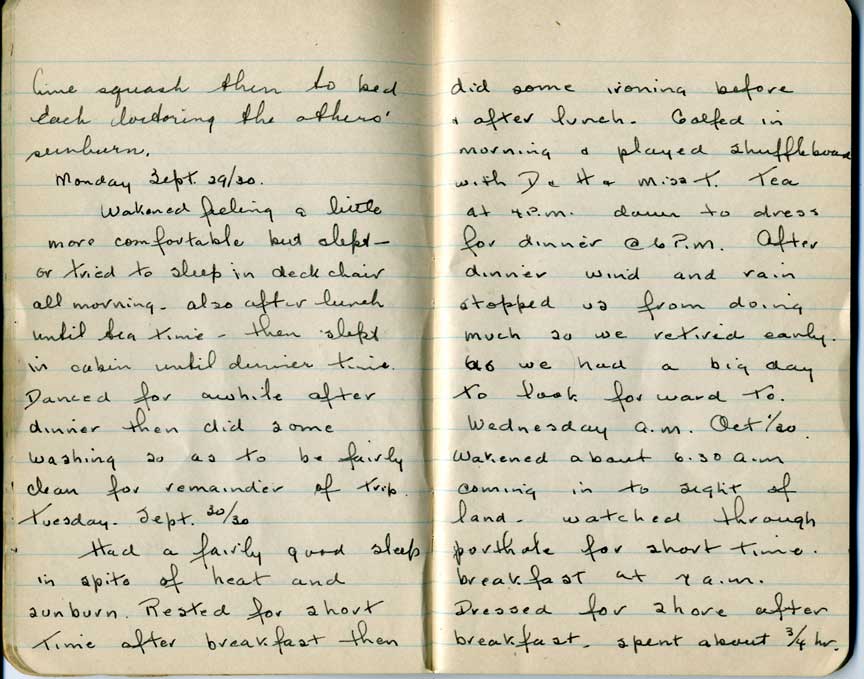 lime squash then to bed
each doctoring the others'
sunburn.
Monday Sept. 29/30.
Wakened feeling a little
more comfortable but slept -
or tried to sleep in deck chair
all morning - also after lunch
until tea time - then slept
in cabin until dinner time.
Danced for awhile after
dinner then did some
washing so as to be fairly
clean for remainder of trip.
Tuesday. Sept. 30/30
Had a fairly good sleep
in spite of heat and
sunburn. Rested for short
time after breakfast then
did some ironing before
& after lunch. Golfed in
morning & played shuffleboard
with De H & Miss T. Tea
at 4 P.M. down to dress
for dinner @ 6 P.M. After
dinner wind and rain
stopped us from doing
much so we retired early.
as we had a big day
to look forward to.
Wednesday a.m. Oct 1/30.
Wakened about 6.30 a.m
coming in to sight of
land - watched through
porthole for short time.
breakfast at 7 a.m.
Dressed for shore after
breakfast - spent about 3/4 hr.